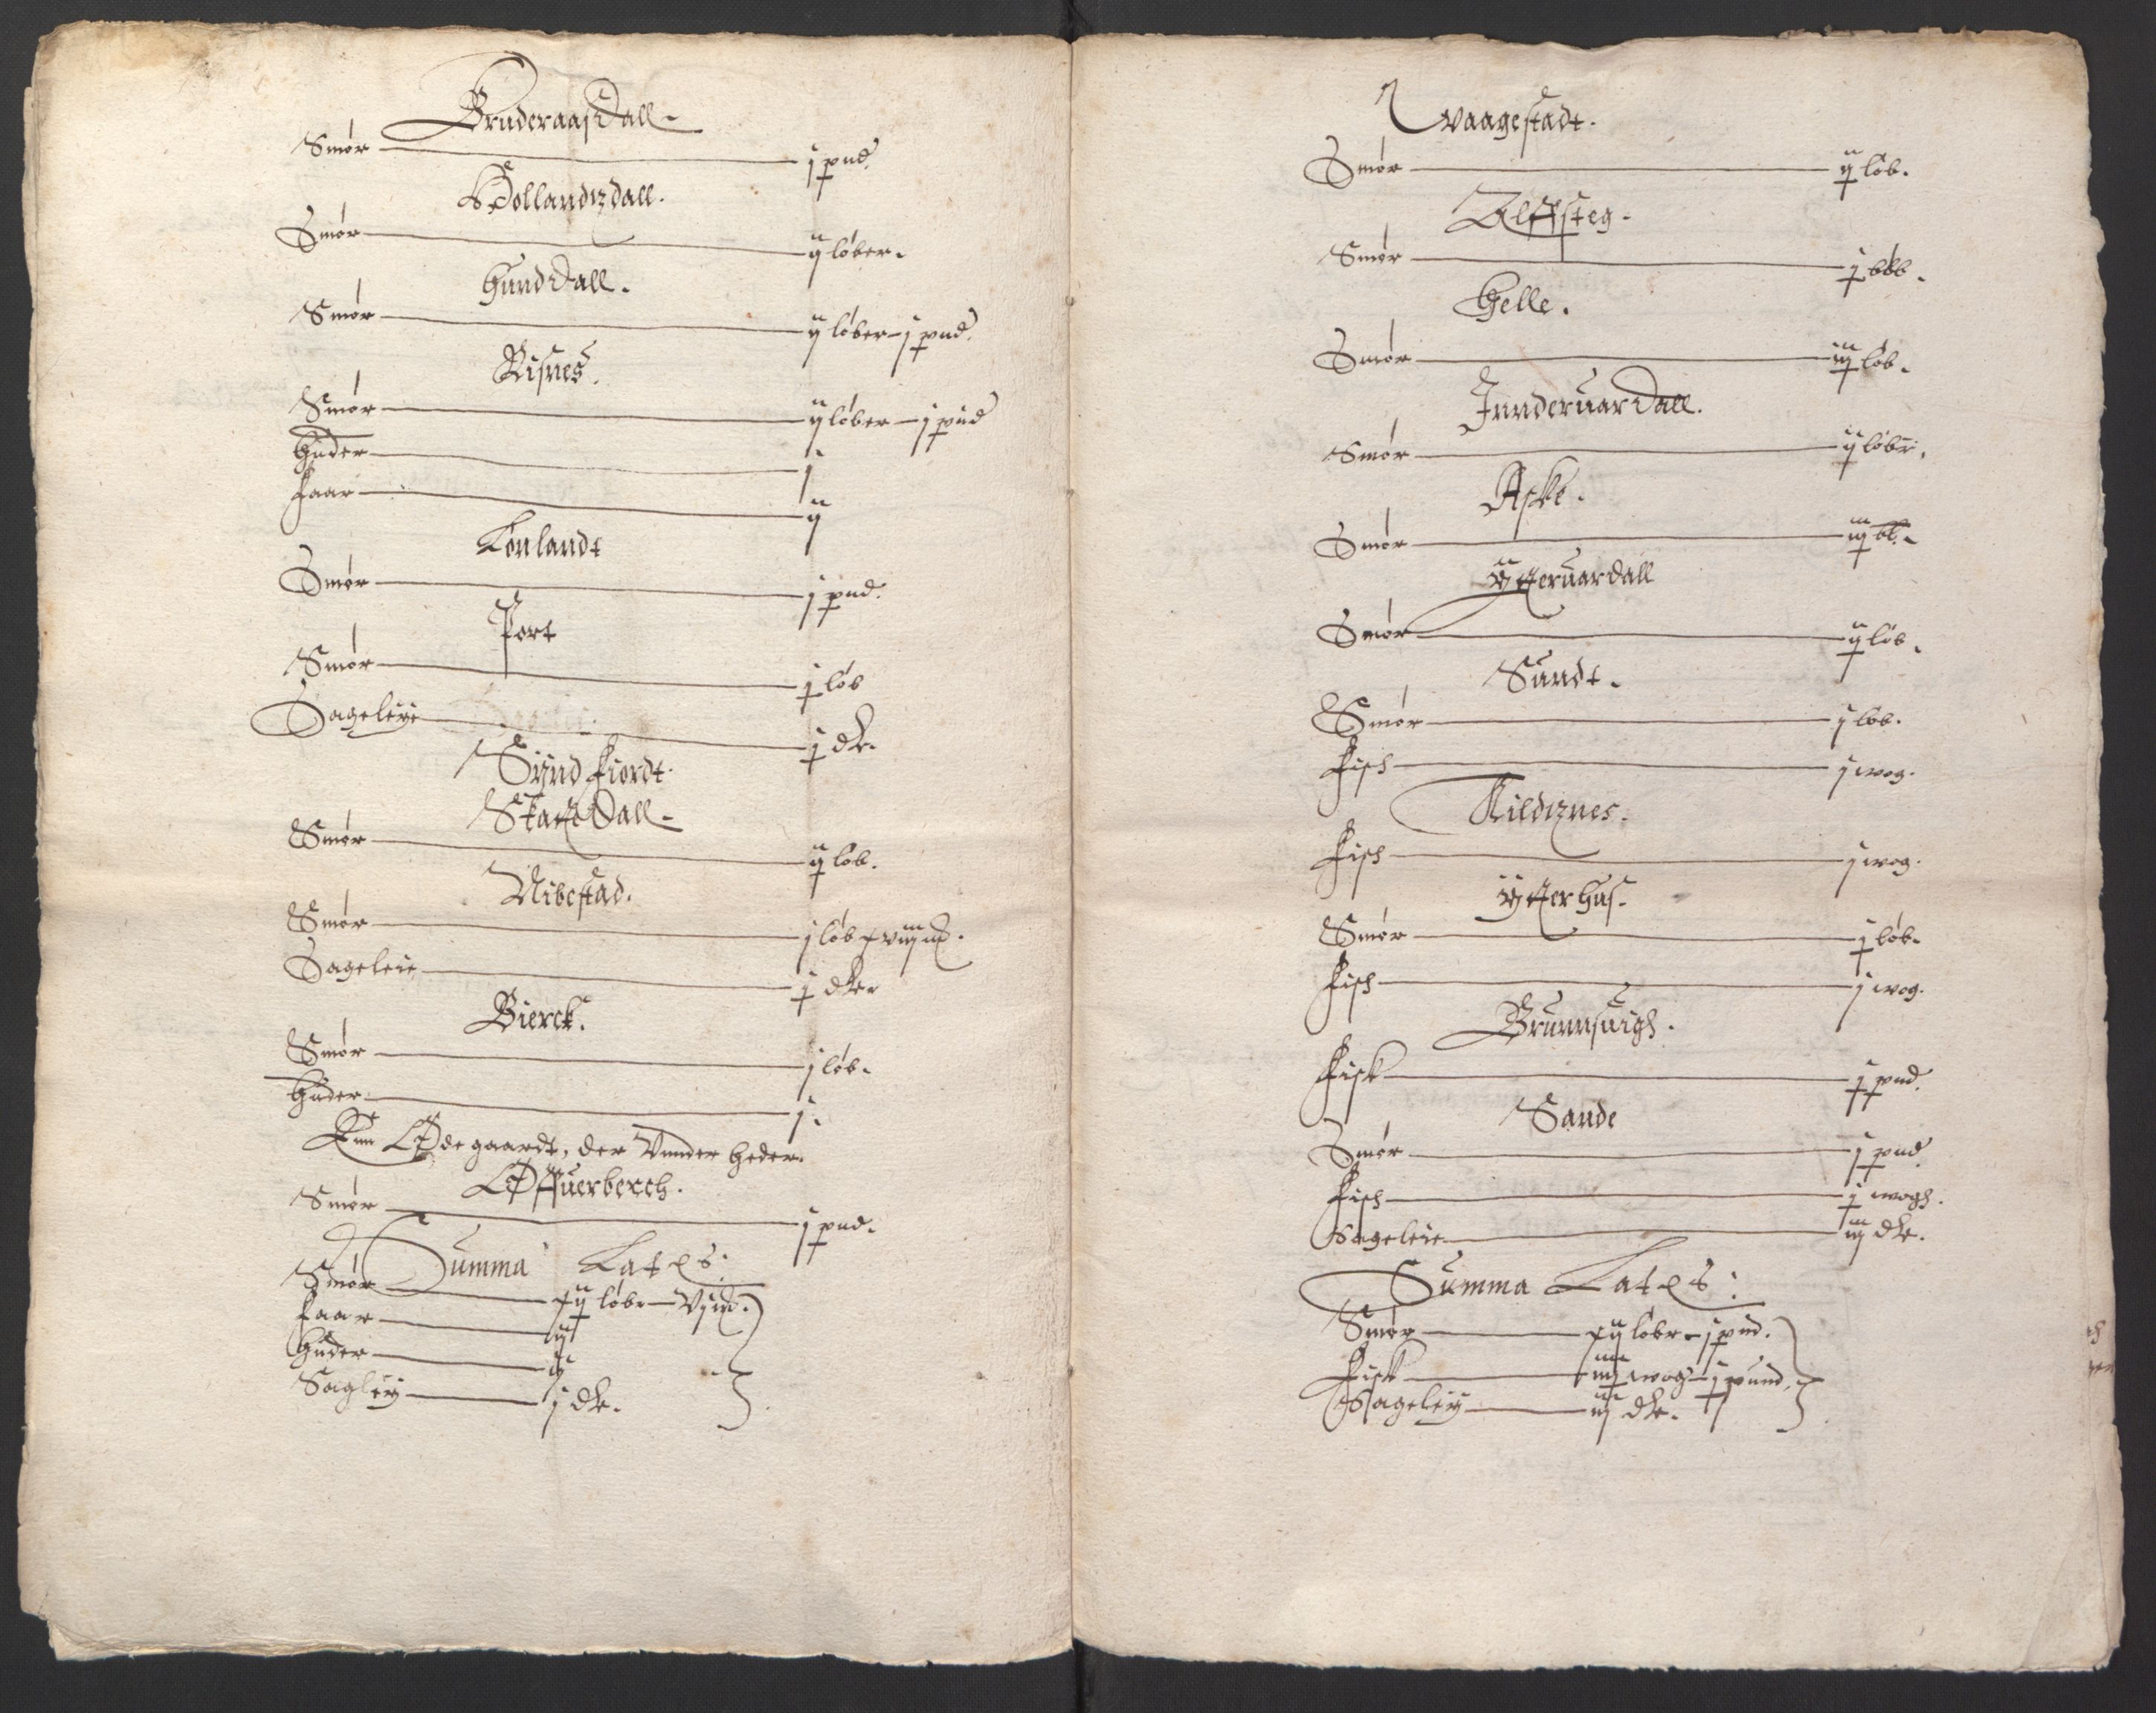 Bruderaasdall
Smør — j pnd.
Hollandzdall.
Smør — ij løber.
Hunddall.
Smør — ij løber — j pnd.
Risnes.
Smør — ij løber — j pnd
Huder — j
Faar — ij
Lønlandt
Smør — j pnd.
Port
Smør — j løb
Sageleye — j dlr.
Synd Fiordt.
Skartdall
Smør — ij løb.
Nibestad.
Smør — j løb xviij m.
Sageleie — j dler
Bierck.
Smør — j løb.
Huder — j.
Enn Ødegaardt, der Vnder heder
Øffuerberch.
Smør — j pnd.
Summa Lat&s:
Smør — xij løbr — vj m.
Faar — ij
Huder — ij
Sagleij — j dlr.
Waagestadt.
Smør — ij løb.
Alffsteg.
Smør — j løb.
Helle.
Smør — iij løb.
Innderuardall.
Smør — ij løbr.
Aske.
Smør — iij bl.
Ytteruardall
Smør — ij løb.
Sundt.
Smør — j løb.
Fisch — j wog.
Kildznes.
Fisch — j wog.
Ytterhus.
Smør — j løb.
Fisch — j wog.
Brunnsuigh.
Fisk — j pnd.
Sande
Smør — j pnd.
Fisch — j wogh.
Sageleie — iij dlr.
Summa Lat&s:
Smør — xij løbr — j pnd.
Fisk — iiij wog — j pund.
Sageleij — iij dlr.